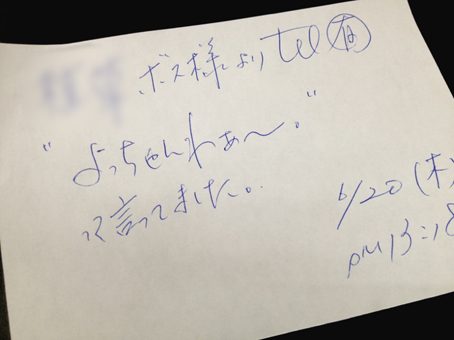 ボス様より tel 有
"よっちゃんわぁ〜。"
って言ってました。
6/20(木)
PM 13:18